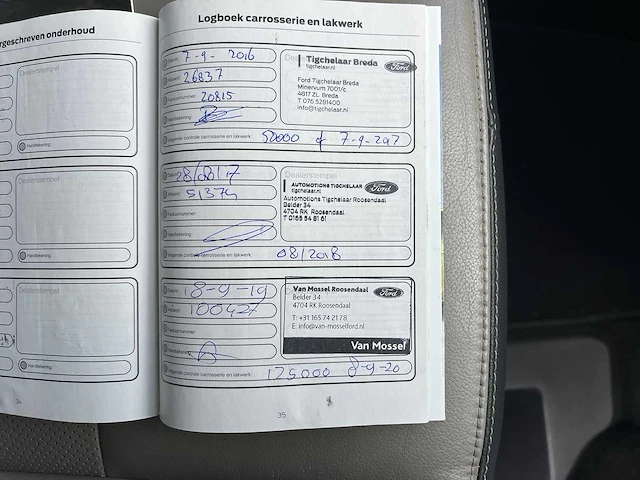 rgeschreven onderhoud
Handtekening:
Handtekening:
Handtekening:
34
Logboek carrosserie en lakwerk
Datum: 7-9-2016
26837
Factuurnummer: 20815
Handtekening:
Volgende controle carrosserie en lakwerk: 50000 of 7-9-2017
Tigchelaar Breda
tigchelaar.nl
Ford
Ford Tigchelaar Breda
Minervum 7001/c
4817 ZL Breda
T 076 5281400
info@tigchelaar.nl
28/08/17
51374
Factuurnummer:
Handtekening:
Volgende controle carrosserie en lakwerk: 08/2018
Dealerstempel
AUTOMOTIONS TIGCHELAAR
tigchelaar.nl
Ford
Automotions Tigchelaar Roosendaal
Belder 34
4704 RK Roosendaal
T 0165 54 81 61
18-9-19
100427
Factuurnummer:
Handtekening:
Volgende controle carrosserie en lakwerk: 125000 8-9-20
Van Mossel Roosendaal
Ford
Belder 34
4704 RK Roosendaal
T: +31 165 74 21 78
E: info@van-mosselford.nl
Van Mossel
35